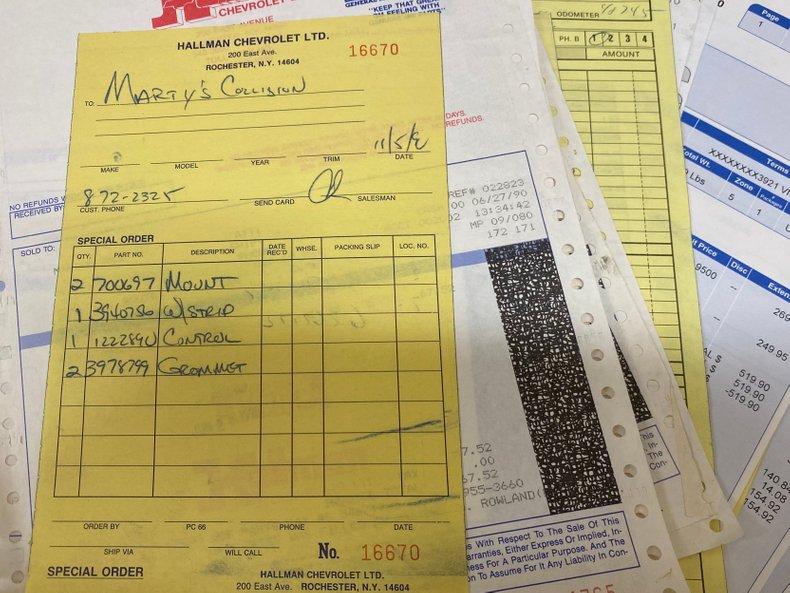 CHEVROLET
AVENUE
"KEEP THAT GREAT
GM FEELING WITH
HALLMAN CHEVROLET LTD.
200 East Ave.
ROCHESTER, N.Y. 14604
16670
TO: MARTY'S COLLISION
MAKE MODEL YEAR TRIM DATE
872-2325
CUST. PHONE SEND CARD SALESMAN
SPECIAL ORDER
QTY. PART NO. DESCRIPTION DATE REC'D WHSE. PACKING SLIP LOC. NO.
2 700697 MOUNT
1 3940756 W/STRIP
1 1222890 CONTROL
2 3978799 GROMMET
ORDER BY PC 66 PHONE DATE
SHIP VIA WILL CALL No. 16670
SPECIAL ORDER
HALLMAN CHEVROLET LTD.
200 East Ave. ROCHESTER, N.Y. 14604
NO REFUNDS
RECEIVED BY
SOLD TO:
DAYS.
REFUNDS.
REF# 022823
00 06/27/90
02 13:34:42
MP 09/080
172 171
7.52
.00
67.52
955-3660
ROWLAND
s With Respect To The Sale Of This
arranties, Either Express Or Implied, In-
ness For A Particular Purpose. And The
on To Assume For It Any Liability In Con-
his
In-
The
Con-
ODOMETER
PH. B 1 2 3 4
AMOUNT
Page
1
Terms
XXXXXXXX3921 VI
otal Wt. Zone Packages
Lbs 5 1
it Price Disc Exten
9500 — 269
— 249.95
AL $ 519.90
$ 519.90
$ -519.90
140.84
14.08
154.92
154.92